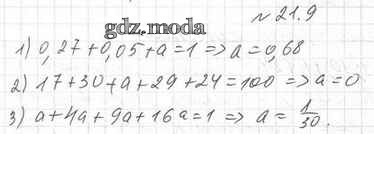 № 21.9
gdz.moda
1) 0,27+0,05+a=1 => a=0,68
2) 17+30+a+29+24=100 => a=0
3) a+4a+9a+16a=1 => a= 1/30.